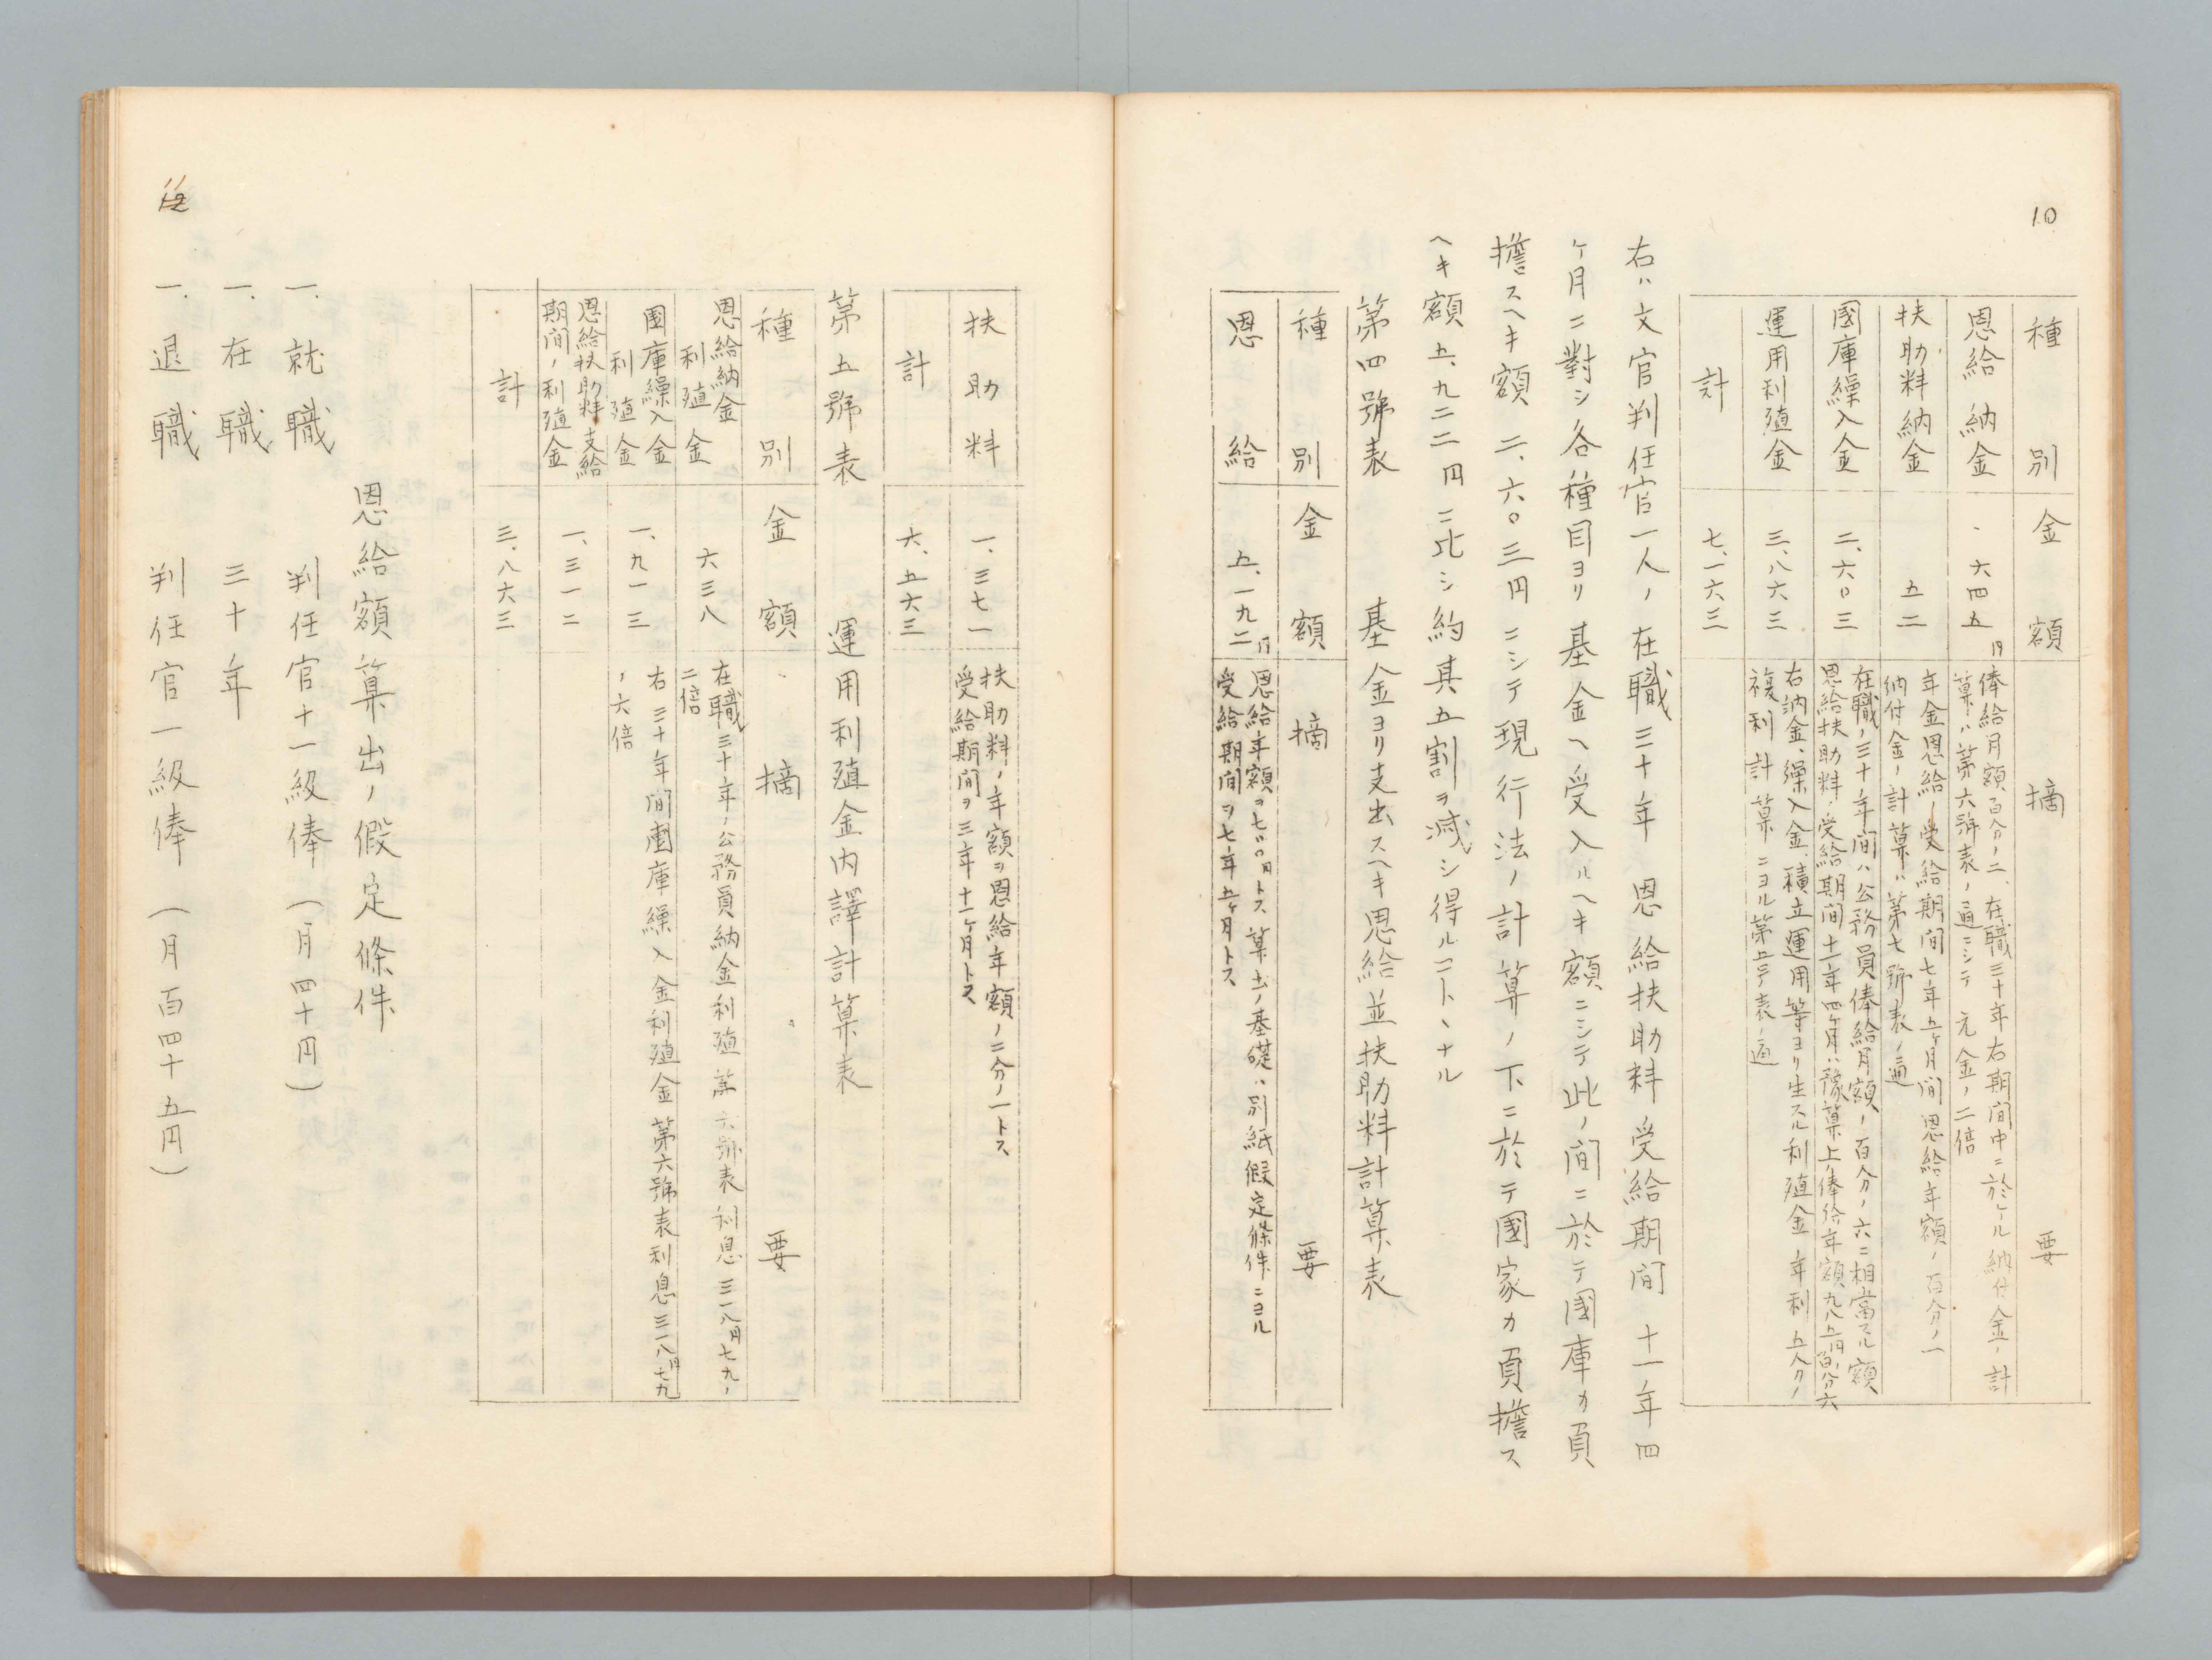 10
種別 金額 摘要
恩給納金 六四五円 俸給月額百分ノ二、在職三十年右期間中ニ於ケル納付金ノ計
算ハ第六號表ノ通ニシテ元金ノ二倍
扶助料納金 五二 年金恩給ノ受給期間七年五ヶ月間恩給年額ノ百分ノ一
納付金ノ計算ハ第七號表ノ通
國庫繰入金 二、六〇三 在職ノ三十年間ハ公務員俸給月額ノ百分ノ六ニ相當スル額
恩給扶助料ノ受給期間十一年四ヶ月ハ豫算上ノ俸給年額九八五円ノ百分ノ六
運用利殖金 三、八六三 右納金、繰入金、積立運用等ヨリ生スル利殖金 年利五分ノ
複利計算ニヨル第五号表ノ通
計 七、一六三
右ハ文官判任官一人ノ在職三十年 恩給扶助料受給期間 十一年四
ヶ月ニ對シ各種目ヨリ基金ヘ受入ルヘキ額ニシテ此ノ間ニ於テ國庫カ負
擔スヘキ額二、六〇三円ニシテ現行法ノ計算ノ下ニ於テ國家カ負擔ス
ヘキ額五、九二二円ニ比シ約其五割ヲ減シ得ルコトヽナル
第四號表 基金ヨリ支出スヘキ恩給並扶助料計算表
種別 金額 摘要
恩給 五、一九二円 恩給年額ヲ七〇〇円トス 算出ノ基礎ハ別紙假定條件ニヨル
受給期間ヲ七年五ヶ月トス
扶助料 一、三七一 扶助料ノ年額ヲ恩給年額ノ二分ノ一トス
受給期間ヲ三年十一ヶ月トス
計 六、五六三
第五號表 運用利殖金内譯計算表
種別 金額 摘要
恩給納金 六三八 在職三十年ノ公務員納金利殖 第六號表利息三一八円七九ノ
利殖金 二倍
國庫繰入金 一、九一三 右三十年間國庫繰入金利殖金 第六號表利息三一八円七九
利殖金 ノ六倍
恩給扶助料支給 一、三一二
期間ノ利殖金
計 三、八六三
恩給額算出ノ假定條件
一、就職 判任官十一級俸(月四十円)
一、在職 三十年
一、退職 判任官一級俸(月百四十五円)